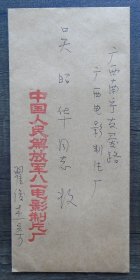 广西南宁友爱路
广西电影制片厂
吴昭华同志收
中国人民解放军八一电影制片厂